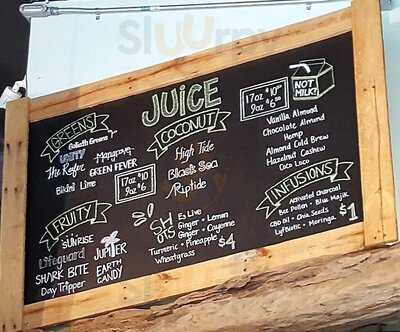 JUICE
GREENS
Goliath Greens
UNITY
Mangrove
The Reefer
GREEN FEVER
Bikini Lime
17oz $10
9oz $6
FRUITY
SUNRISE
Lifeguard
JUPITER
SHARK BITE
EARTH CANDY
Day Tripper
COCONUT
High Tide
Black Sea
Riptide
SHOTS
E3 Live
Ginger + Lemon
Ginger + Cayenne
Turmeric + Pineapple
Wheatgrass
$4
17oz $10
9oz $6.50
NOT MILK!
Vanilla Almond
Chocolate Almond
Hemp
Almond Cold Brew
Hazelnut Cashew
Coco Loco
INFUSIONS
Activated Charcoal
Bee Pollen • Blue Majik
CBD Oil • Chia Seeds
Lyfbiotic • Moringa
$1